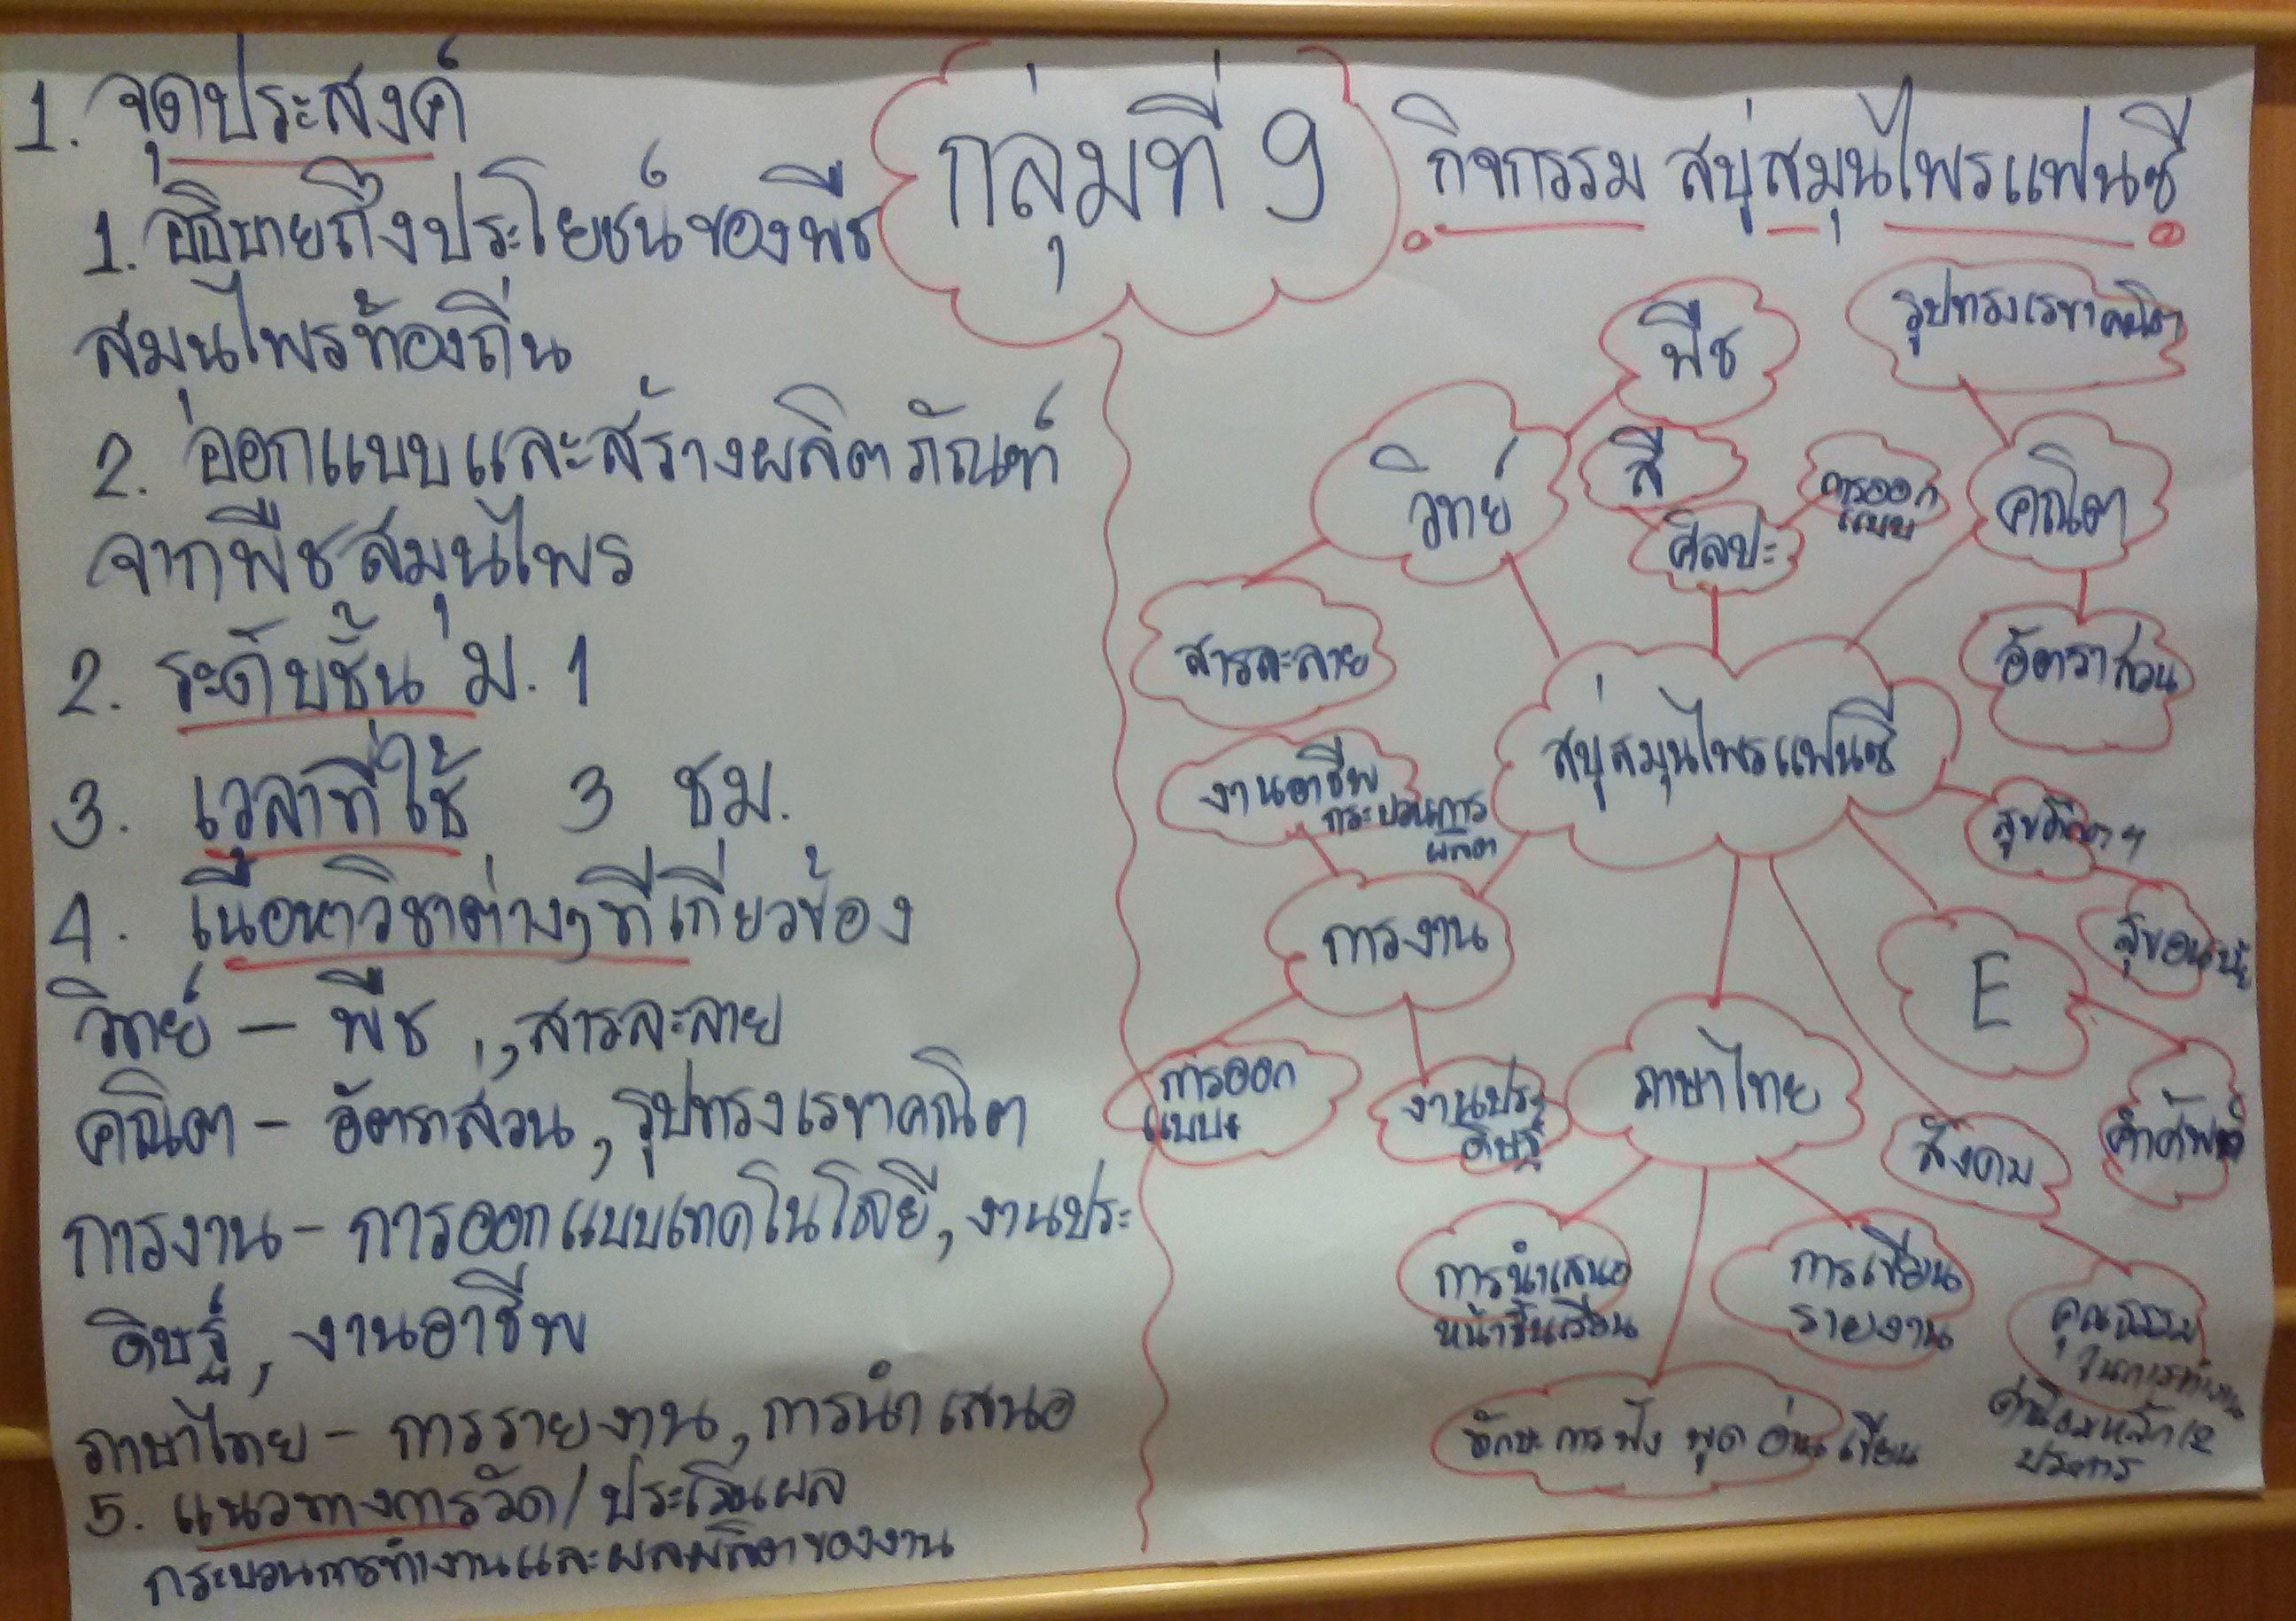 กลุ่มที่ 9
กิจกรรม สบู่สมุนไพรแฟนซี
1. จุดประสงค์
1. อธิบายถึงประโยชน์ของพืช
สมุนไพรท้องถิ่น
2. ออกแบบและสร้างผลิตภัณฑ์
จากพืชสมุนไพร
2. ระดับชั้น ม. 1
3. เวลาที่ใช้ 3 ชม.
4. เนื้อหาวิชาต่างๆที่เกี่ยวข้อง
วิทย์ - พืช , สารละลาย
คณิต - อัตราส่วน, รูปทรงเรขาคณิต
การงาน - การออกแบบเทคโนโลยี, งานประ
ดิษฐ์, งานอาชีพ
ภาษาไทย - การรายงาน, การนำเสนอ
5. แนวทางการวัด/ประเมินผล
กระบวนการทำงานและผลผลิตของงาน
พืช
รูปทรงเรขาคณิต
วิทย์
สี
การออก
แบบ
ศิลปะ
คณิต
สารละลาย
อัตราส่วน
สบู่สมุนไพรแฟนซี
งานอาชีพ
กระบวนการ
ผลิต
สุขศึกษาฯ
การงาน
E
สุขอนามัย
การออก
แบบ
งานประ
ดิษฐ์
ภาษาไทย
สังคม
คำศัพท์
การนำเสนอ
หน้าชั้นเรียน
การเขียน
รายงาน
คุณธรรม
ในการทำงาน
ค่านิยมหลัก 12
ประการ
ทักษะการฟัง พูด อ่าน เขียน